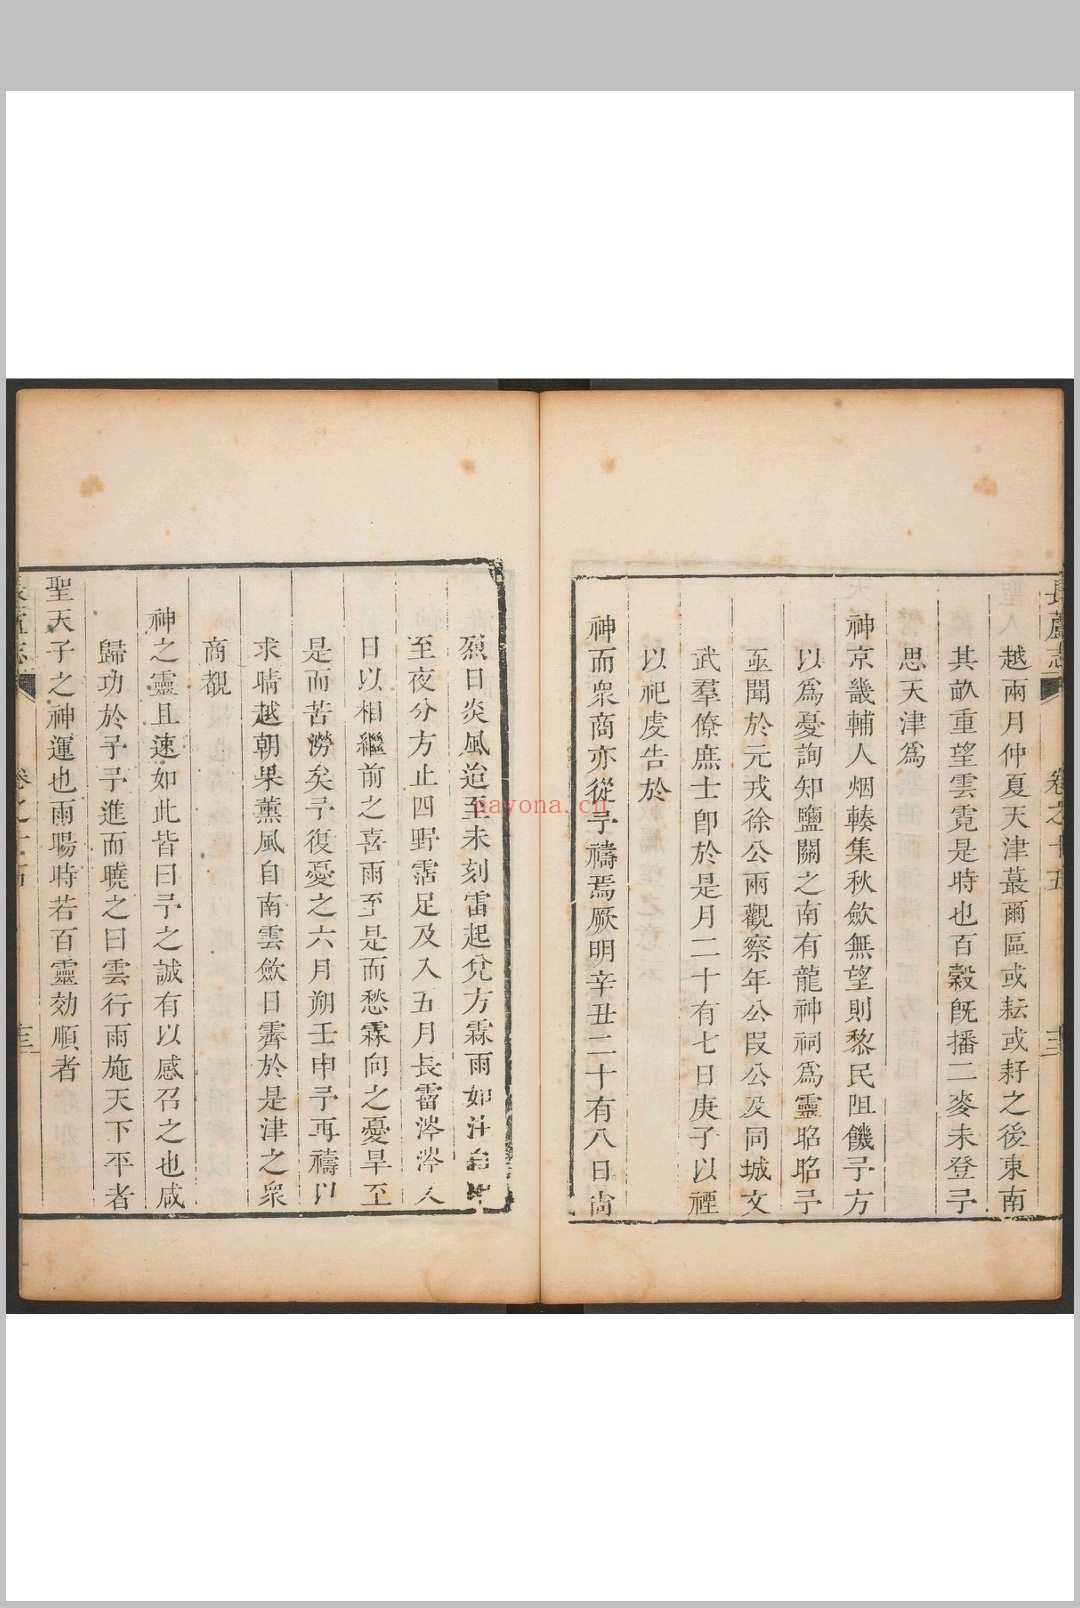 長蘆志
卷之十五
十二
越兩月仲夏天津蕞爾區或耘或耔之後東南
其畝重望雲霓是時也百穀旣播二麥未登予
思天津爲
神京畿輔人烟輳集秋歛無望則黎民阻饑予方
以爲憂詢知鹽關之南有龍神祠爲靈昭昭予
亟聞於元戎徐公兩觀察年公叚公及同城文
武羣僚庶士卽於是月二十有七日庚子以禋
以祀虔告於
神而衆商亦從予禱焉厥明辛丑二十有八日尚
烈日炎風迨至未刻雷起兌方霖雨如注
至夜分方止四野霑足及入五月長霤涔涔
日以相繼前之喜雨至是而愁霖向之憂旱至
是而苦澇矣予復憂之六月朔壬申予再禱以
求晴越朝果薰風自南雲歛日霽於是津之衆
商覩
神之靈且速如此皆曰予之誠有以感召之也咸
歸功於予予進而曉之曰雲行雨施天下平者
聖天子之神運也雨暘時若百靈効順者
長蘆志
卷之十五
nayona.cn